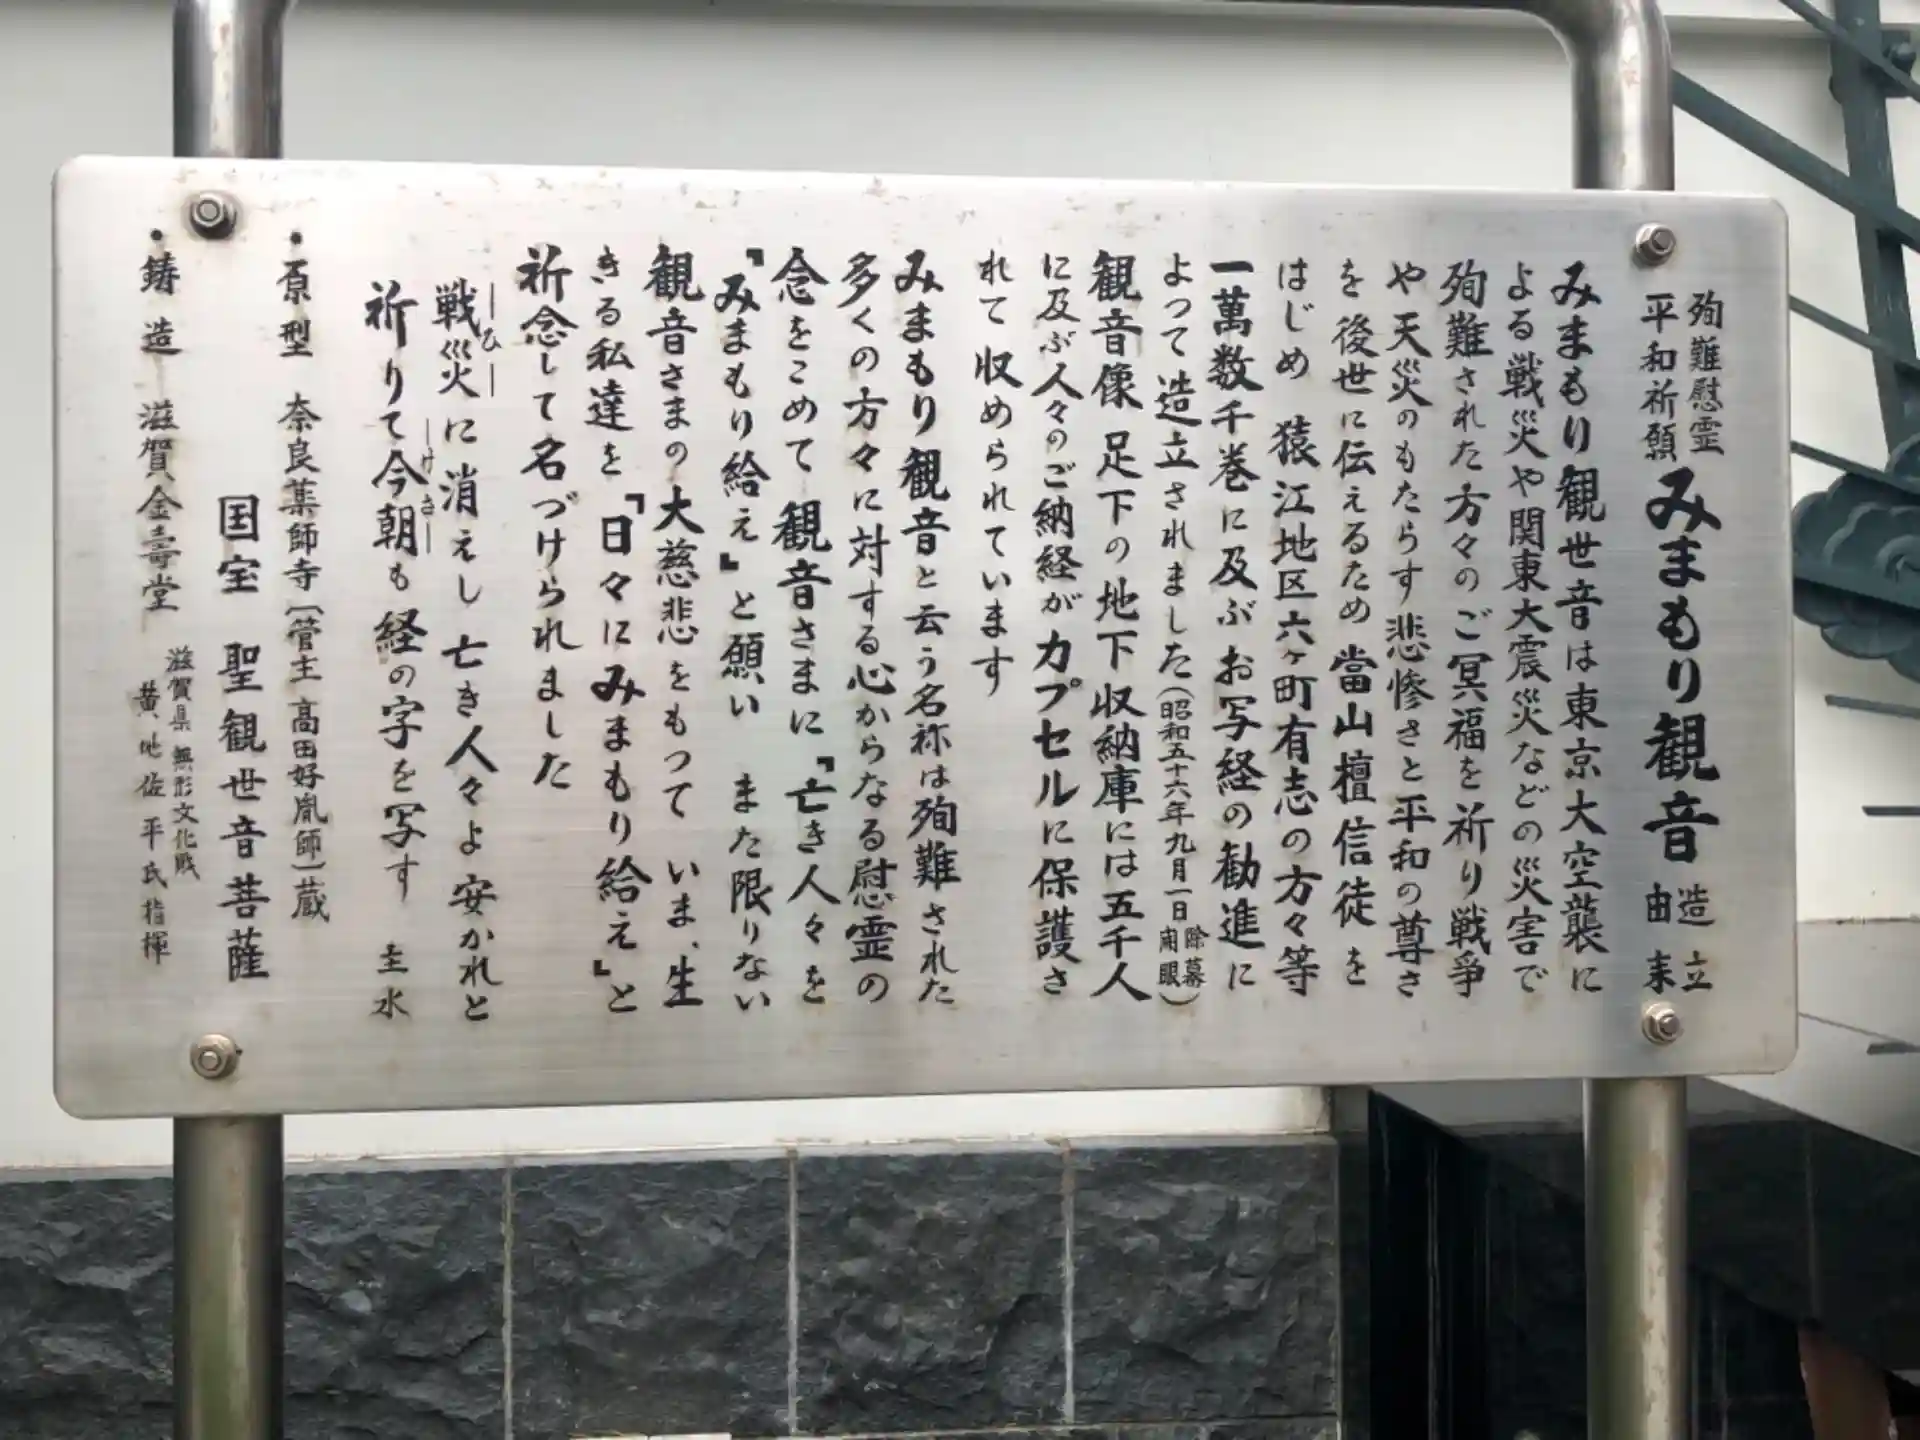 殉難慰霊
平和祈願
みまもり観音
造立
由来
みまもり観世音は東京大空襲に
よる戦災や関東大震災などの災害で
殉難された方々のご冥福を祈り戦争
や天災のもたらす悲惨さと平和の尊さ
を後世に伝えるため 當山檀信徒を
はじめ 猿江地区六ヶ町有志の方々等
一萬数千巻に及ぶお写経の勧進に
よって造立されました(昭和五十六年九月一日 除幕開眼)
観音像 足下の地下収納庫には五千人
に及ぶ人々のご納経がカプセルに保護さ
れて収められています
みまもり観音と云う名称は殉難された
多くの方々に対する心からなる慰霊の
念をこめて観音さまに『亡き人々を
『みまもり給え』と願い また限りない
観音さまの大慈悲をもつて いま、生
きる私達を『日々にみまもり給え』と
祈念して名づけられました
戦災に消えし亡き人々よ安かれと
ひ
祈りて今朝も経の字を写す 主水
けさ
・原型 奈良薬師寺(管主 高田好胤師)蔵
国宝 聖観世音菩薩
・鋳造 滋賀金壽堂
滋賀県 無形文化財
黄地佐平氏指揮